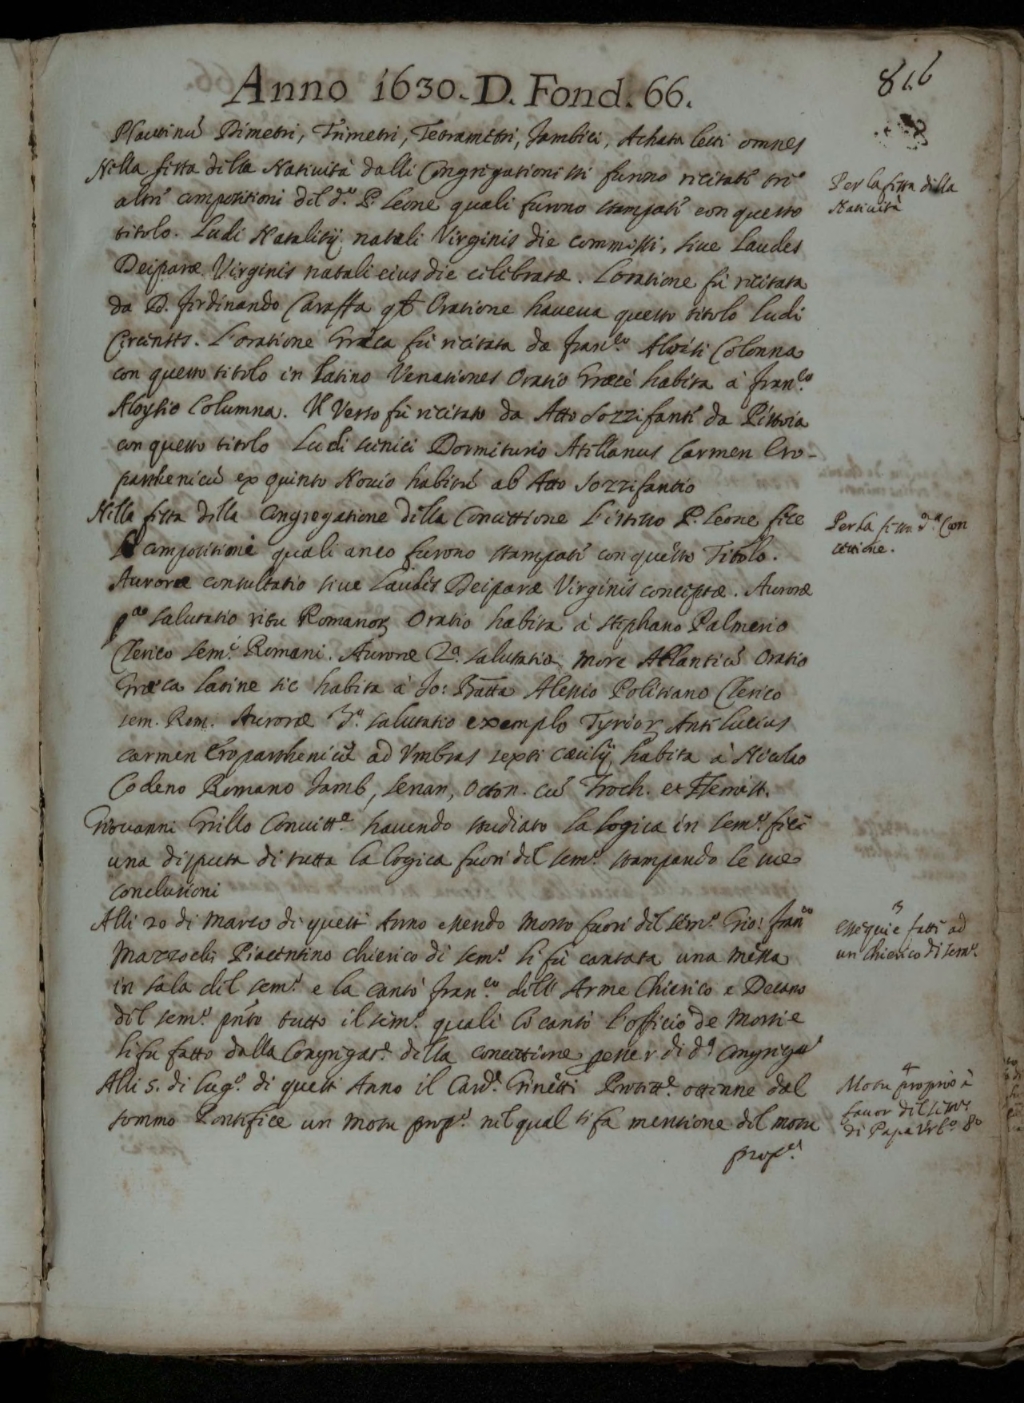 Anno 1630. D. Fond. 66.
816
Plautinũ Dimetri, Trimetri, Tetrametri, Jambici, Achata lecti omnes
Nella festa della Natività dalli Congregationisti furono recitate tre
altre compositioni del d.º P. Leone quali furono stampate con questo
titolo. Ludi Natalitij natali Virginis die commissi, sive Laudes
Deiparæ Virginis natali eius die celebratæ. L'oratione fù recitata
da D. Ferdinando Caraffa Oratione haveva questo titolo Ludi
Circenses. L'oratione Græca fù recitata da Fran.co Aloisi Colonna
con questo titolo in Latino Venationes Oratio Græcè habita à Fran.co
Aloysio Columna. Il Verso fù recitato da Atto Sozzifanti da Pistoia
con questo titolo Ludi scenici Dormiturio Atellanus Carmen Ero-
parthenicũ ex quinto Novio habitũ ab Atto Sozzifantio
Nella festa della Congregatione della Concettione l'istesso P. Leone fece
compositione quali anco furono stampate con questo Titolo.
Auroræ consultatio sive Laudes Deiparæ Virginis conceptæ. Auroræ
p.a salutatio ritu Romanor Oratio habita à Stephano Palmerio
Clerico Sem.º Romani. Auroræ 2.ª salutatio more Atlanticũ Oratio
Græca Latine sic habita à Jo: Batta Alessio Politiano Clerico
sem. Rom. Auroræ 3.ª salutatio exemplo Tyrior Antelucius
carmen Eroparthenicũ ad Umbras sexti Cæcilij habita à Nicolao
Codeno Romano Jamb, Senar, Octon. cũ Troch. et Hemist.
Giovanni Grillo Convitt.e havendo studiato la Logica in Sem.º fece
una disputa di tutta la logica fuori del sem.º stampando le sue
conclusioni
Alli 20 di Marzo di quest Anno essendo morto fuori del Sem.º Gio: Fran.co
Mazzochi Piacentino chierico di sem.º li fù cantata una messa
in sala del sem.º e la cantò Fran.co dell' Arme Chierico e Decano
del sem.º pñte tutto il sem.º quali cantò l'officio de Morti e
li fu fatto dalla Congregat.e della concettione di d.ª Congreg.e
Alli 5. di Lug.º di quest Anno il Card.l Ginetti Protett.e ottenne dal
sommo Pontefice un Motu prop.º nel qual si fa mentione del motu
prop.º
Per la festa della
Natività
Per la festa d.ª Con
cettione.
3
Essequie fatte ad
un chierico di sem.º
4
Motu proprio à
favor del sem.º
di Papa Urb.º 8º